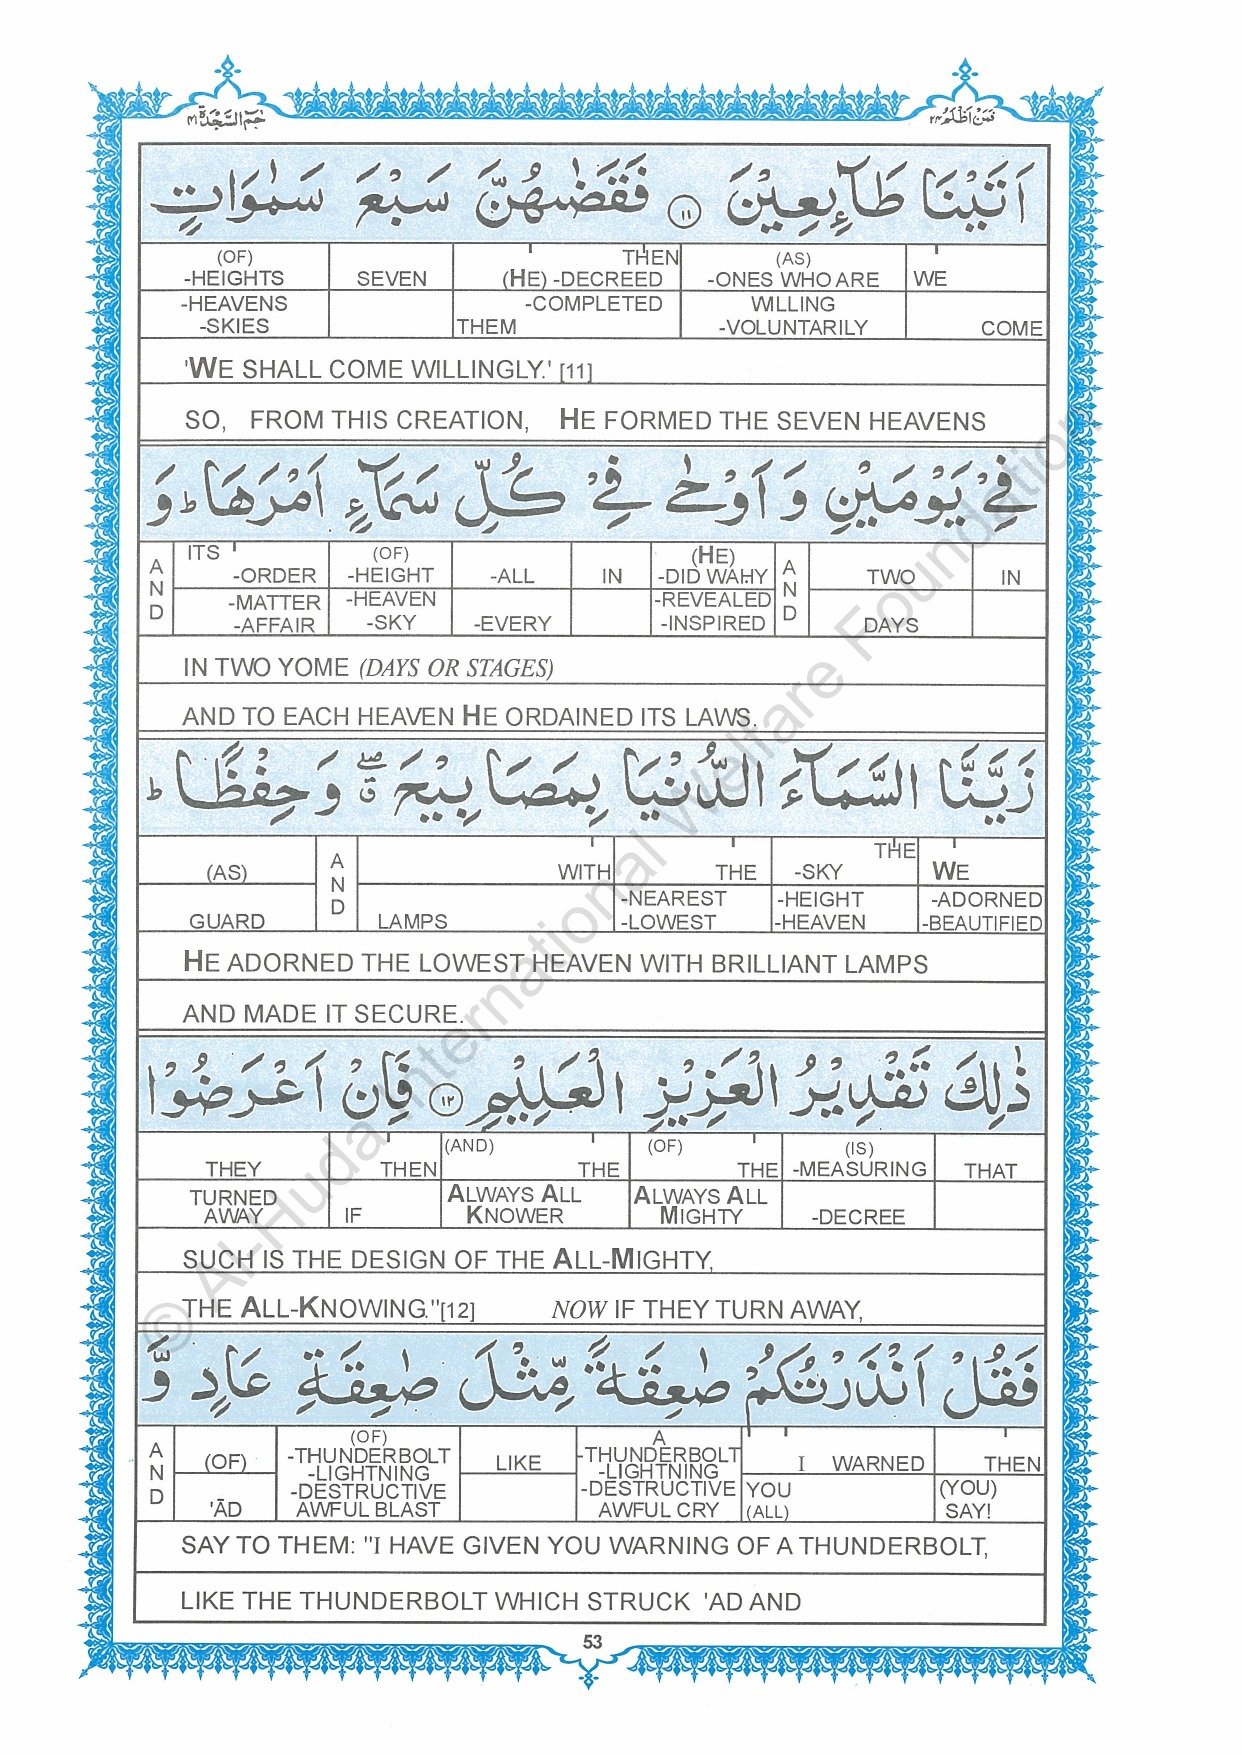 حٰمٓ السَّجْدَة ٤١
فَمَنْ اَظْلَمُ ٢٤
اَتَيْنَا طَآئِعِيْنَ ١١ فَقَضٰىهُنَّ سَبْعَ سَمٰوَاتٍ
(OF) THEN (AS)
-HEIGHTS SEVEN (HE) -DECREED -ONES WHO ARE WE
-HEAVENS -COMPLETED WILLING
-SKIES THEM -VOLUNTARILY COME
'WE SHALL COME WILLINGLY.' [11]
SO, FROM THIS CREATION, HE FORMED THE SEVEN HEAVENS
فِيْ يَوْمَيْنِ وَ اَوْحٰى فِيْ كُلِّ سَمَآءٍ اَمْرَهَا ؕ وَ
AND ITS (OF) (HE) AND
-ORDER -HEIGHT -ALL IN -DID WAHY TWO IN
-MATTER -HEAVEN -REVEALED
-AFFAIR -SKY -EVERY -INSPIRED DAYS
IN TWO YOME (DAYS OR STAGES)
AND TO EACH HEAVEN HE ORDAINED ITS LAWS.
زَيَّنَّا السَّمَآءَ الدُّنْيَا بِمَصَابِيْحَ ۖۗ وَ حِفْظًا ؕ
AND THE
(AS) WITH THE -SKY WE
-NEAREST -HEIGHT -ADORNED
GUARD LAMPS -LOWEST -HEAVEN -BEAUTIFIED
HE ADORNED THE LOWEST HEAVEN WITH BRILLIANT LAMPS
AND MADE IT SECURE.
ذٰلِكَ تَقْدِيْرُ الْعَزِيْزِ الْعَلِيْمِ ١٢ فَاِنْ اَعْرَضُوْا
(AND) (OF) (IS)
THEY THEN THE THE -MEASURING THAT
TURNED ALWAYS ALL ALWAYS ALL
AWAY IF KNOWER MIGHTY -DECREE
SUCH IS THE DESIGN OF THE ALL-MIGHTY,
THE ALL-KNOWING."[12] NOW IF THEY TURN AWAY,
فَقُلْ اَنْذَرْتُكُمْ صٰعِقَةً مِّثْلَ صٰعِقَةِ عَادٍ وَّ
AND (OF) A
(OF) -THUNDERBOLT LIKE -THUNDERBOLT I WARNED THEN
-LIGHTNING -LIGHTNING
-DESTRUCTIVE -DESTRUCTIVE YOU (YOU)
'ĀD AWFUL BLAST AWFUL CRY (ALL) SAY!
SAY TO THEM: "I HAVE GIVEN YOU WARNING OF A THUNDERBOLT,
LIKE THE THUNDERBOLT WHICH STRUCK 'AD AND
53
© Al-Huda International Welfare Foundation